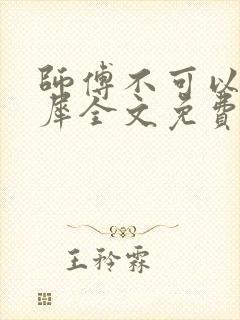 師傅不可以
犀全文免費
王矜霖